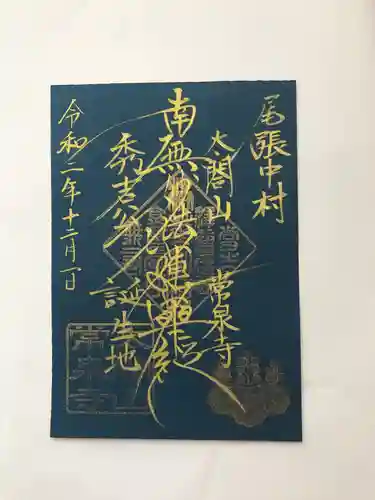 尾張中村
太閤山 常泉寺
南無妙法蓮華経
秀吉公 誕生地
令和二年十二月一日
常泉寺